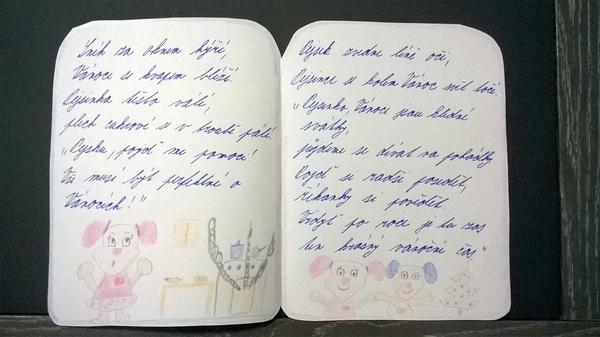 Sníh za oknem hýří,
Vánoce se kvapem blíží.
Pysinka těsto válí,
plech cukroví se v troubě pálí.
„Pysku, pojď mi pomoci!
Vše musí být perfektní o
Vánocích!"
Pysk zvedne líně oči,
Pysince se kolem Vánoc svět točí.
„Pysinko, Vánoce jsou klidné
svátky,
půjdeme se dívat na pohádky
Pojď se radši posadit,
říkanky si povědět.
Vždyť po roce je tu zas
ten krásný vánoční čas."